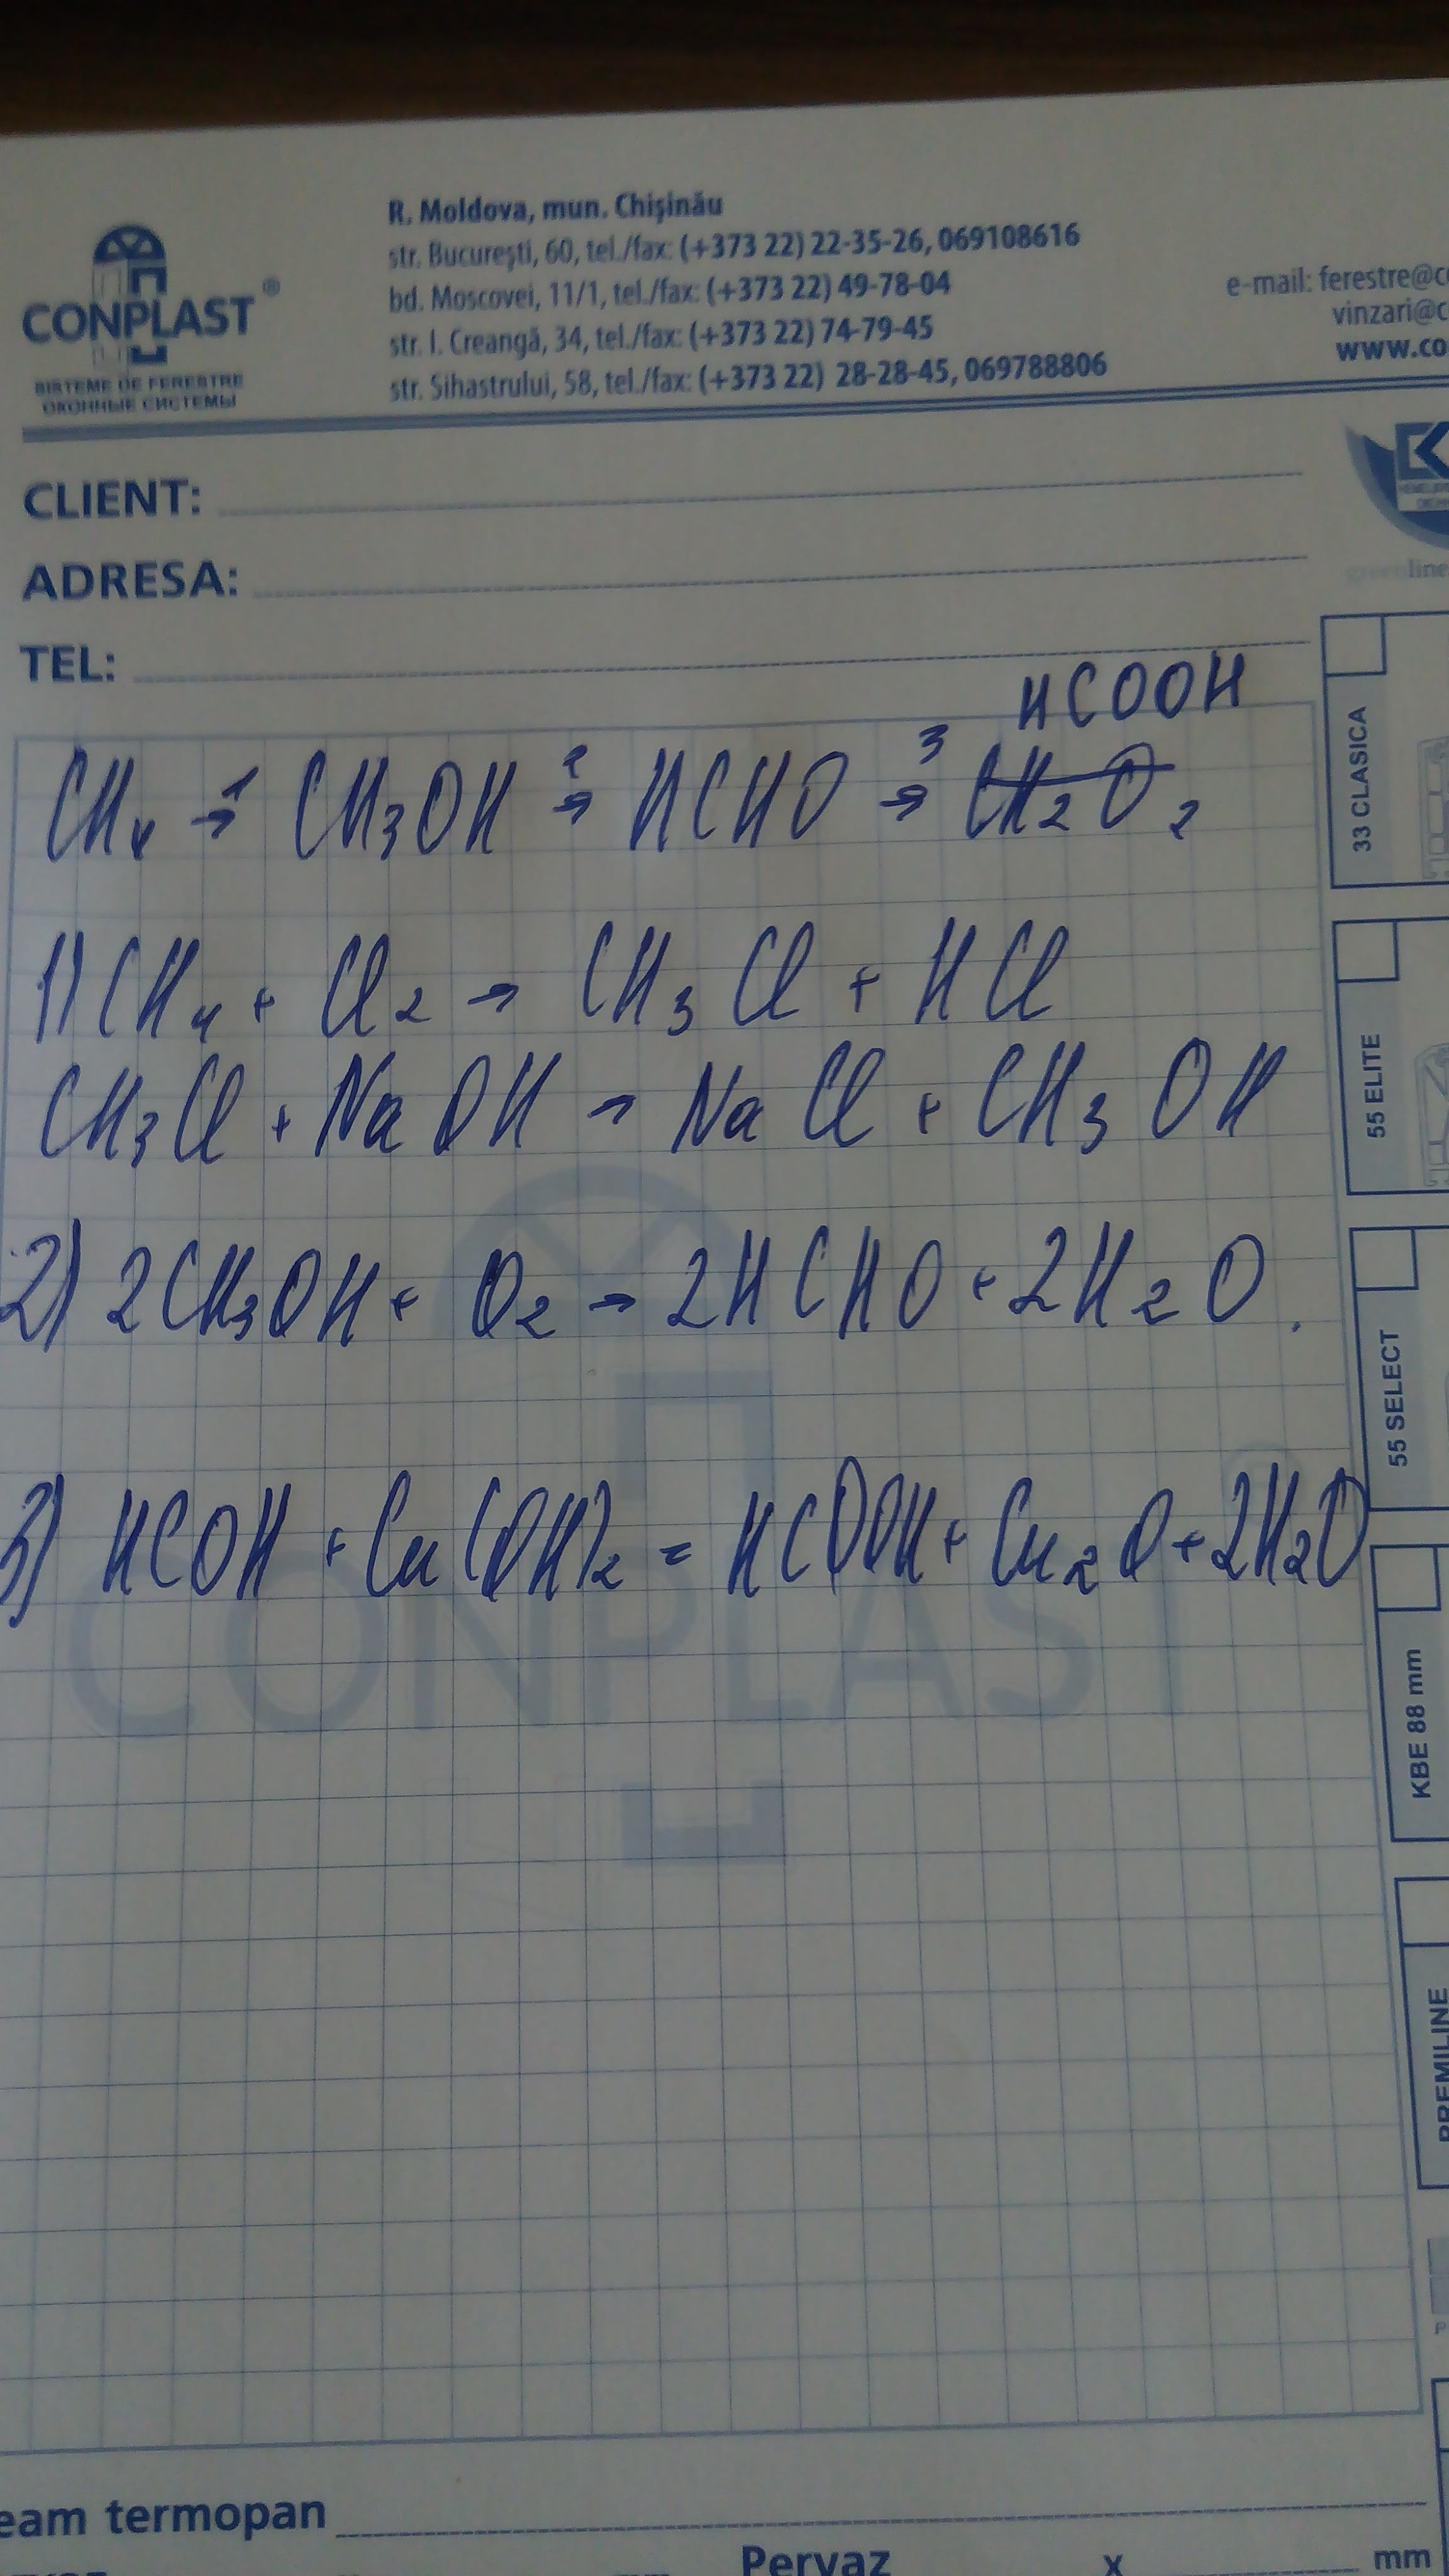 R. Moldova, mun. Chişinău
str. Bucureşti, 60, tel./fax: (+373 22) 22-35-26, 069108616
bd. Moscovei, 11/1, tel./fax: (+373 22) 49-78-04
str. I. Creangă, 34, tel./fax: (+373 22) 74-79-45
str. Sihastrului, 58, tel./fax: (+373 22) 28-28-45, 069788806
e-mail: ferestre@c
vinzari@c
www.co
CONPLAST®
SISTEME DE FERESTRE
ОКОННЫЕ СИСТЕМЫ
CLIENT:
ADRESA:
TEL:
greenline
HCOOH
CH4 →1 CH3OH →2 HCHO →3 CH2O2
1) CH4 + Cl2 → CH3Cl + HCl
CH3Cl + NaOH → NaCl + CH3OH
2) 2CH3OH + O2 → 2HCHO + 2H2O.
3) HCOH + Cu(OH)2 = HCOOH + Cu2O + 2H2O
CONPLAST
33 CLASICA
55 ELITE
55 SELECT
KBE 88 mm
PREMILINE
eam termopan
Pervaz x mm